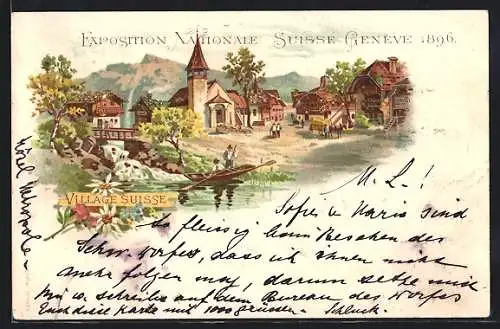 EXPOSITION NATIONALE SUISSE GENÈVE 1896.
VILLAGE SUISSE
M. L.!
Sofie u Mario sind
so fleissig beim Besehen des
Schw. Dorfes, dass ich ihnen nicht
mehr folgen mag, darum setze mich
hin u. schreibe auf dem Bureau des Dorfes
Euch diese Karte mit 1000 grüssen.
Hôtel